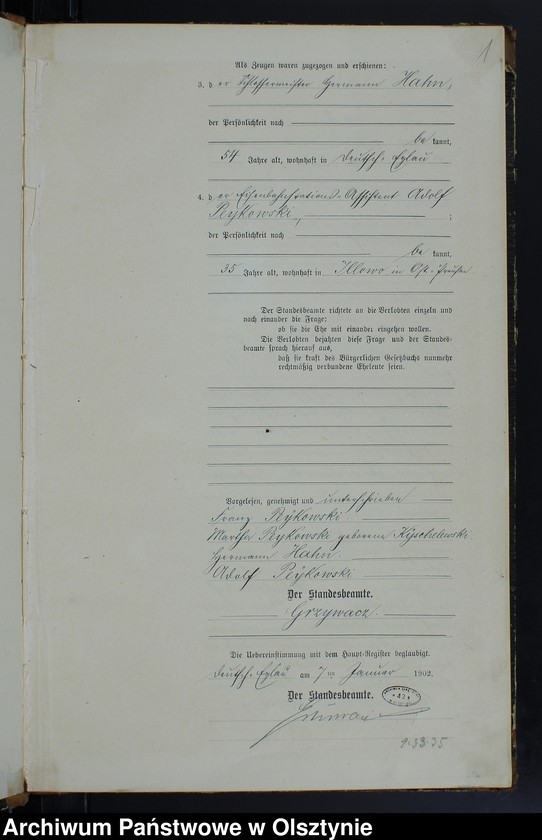 1
Als Zeugen waren zugezogen und erschienen:
3. der Schlossermeister Hermann Hahn,
der Persönlichkeit nach
bekannt,
54 Jahre alt, wohnhaft in Deutsch-Eylau
4. der Eisenbahnstations-Assistent Adolf
Reykowski, ;
der Persönlichkeit nach
bekannt,
35 Jahre alt, wohnhaft in Illowo in Ost-Preußen
Der Standesbeamte richtete an die Verlobten einzeln und
nach einander die Frage:
ob sie die Ehe mit einander eingehen wollen.
Die Verlobten bejahten diese Frage und der Standes-
beamte sprach hierauf aus,
daß sie kraft des Bürgerlichen Gesetzbuchs nunmehr
rechtmäßig verbundene Eheleute seien.
Vorgelesen, genehmigt und unterschrieben
Franz Reykowski
Martha Reykowski geborene Kyschelewski
Hermann Hahn
Adolf Reykowski
Der Standesbeamte.
Grzywacz.
Die Uebereinstimmung mit dem Haupt-Register beglaubigt.
Deutsch-Eylau am 7ten Januar 1902.
Der Standesbeamte.
Archiwum Państwowe w Olsztynie